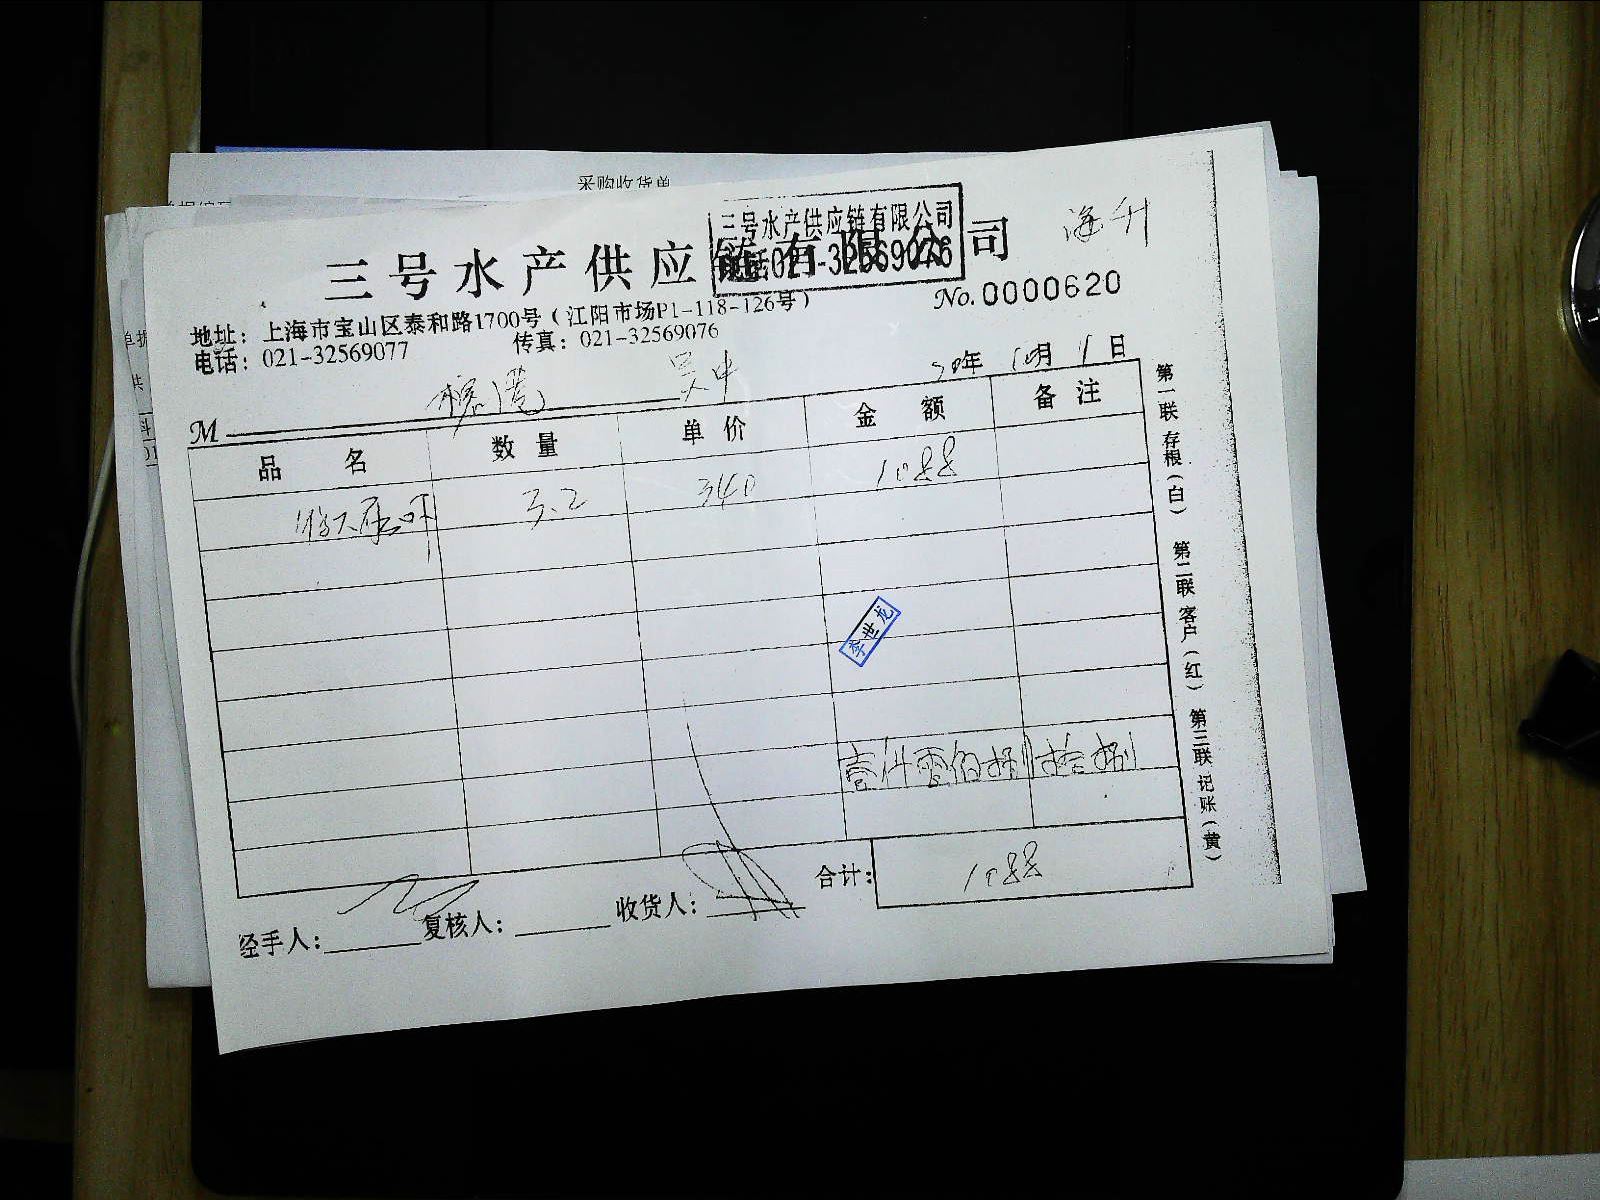 采购收货单
三号水产供应链有限公司
三号水产供应链有限公司
电话021-32569076
海升
No.0000620
地址：上海市宝山区泰和路1700号（江阳市场P1-118-126号）
电话：021-32569077 传真：021-32569076
20年 10月 1日
M 吴中
品名 数量 单价 金额 备注
3.2 340 1088
李世龙
壹仟零佰捌拾捌
合计：1088
经手人： 复核人： 收货人：
第一联 存根（白） 第二联 客户（红） 第三联 记账（黄）